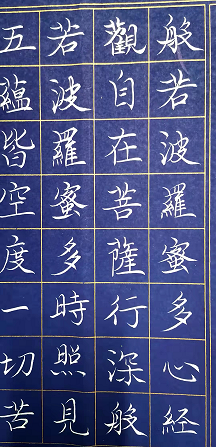 般若波羅蜜多心経
觀自在菩薩行深般
若波羅蜜多時照見
五蘊皆空度一切苦